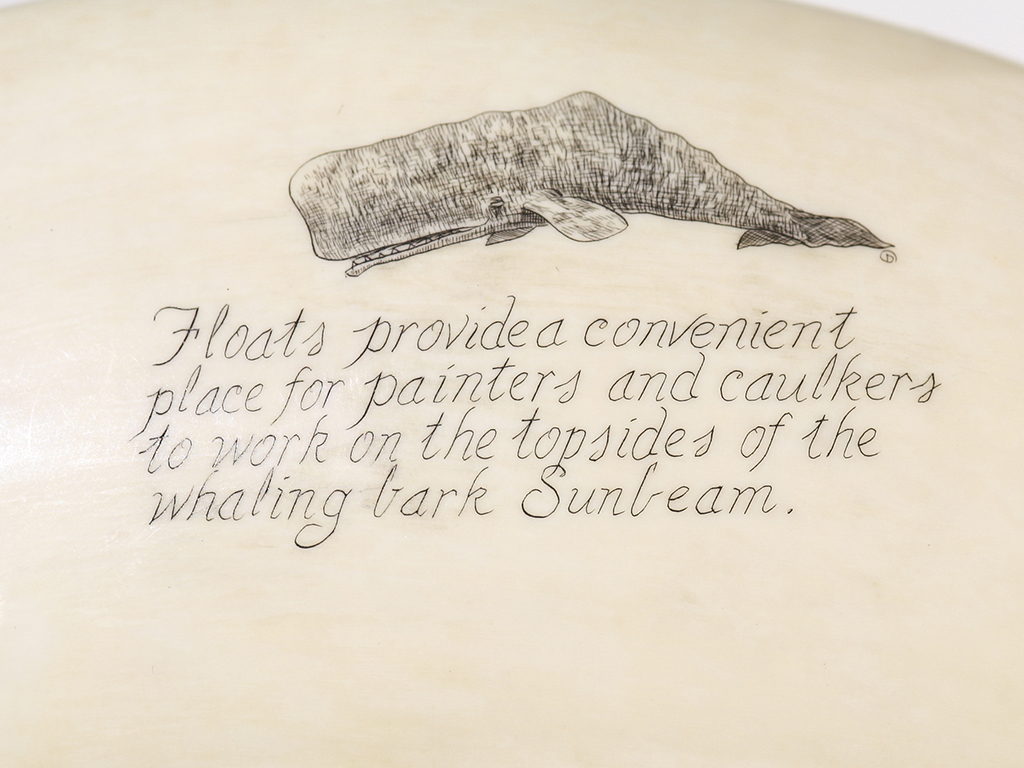 Floats provide a convenient
place for painters and caulkers
to work on the topsides of the
whaling bark Sunbeam.